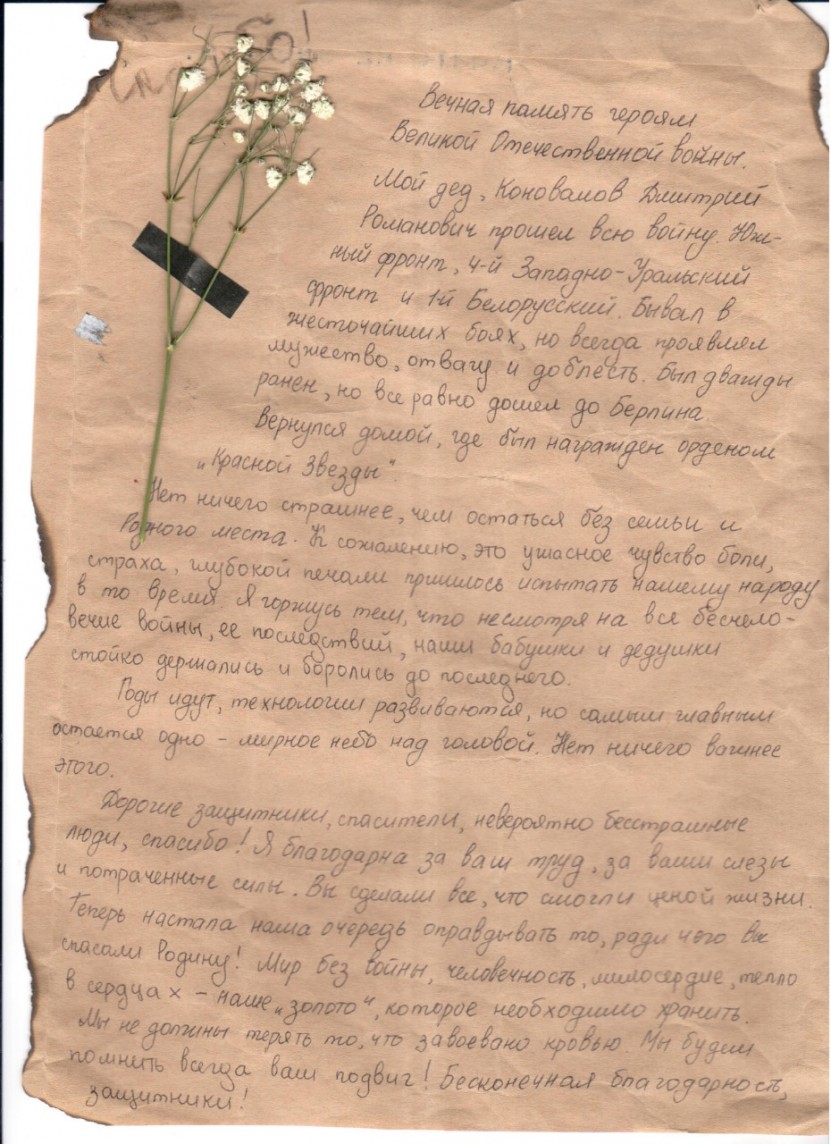 Спасибо!
Вечная память героям
Великой Отечественной войны.
Мой дед, Коновалов Дмитрий
Романович прошел всю войну. Юж-
ный фронт, 4-й Западно-Уральский
фронт и 1й Белорусский. Бывал в
жесточайших боях, но всегда проявлял
мужество, отвагу и доблесть. Был дважды
ранен, но все равно дошел до Берлина.
Вернулся домой, где был награжден орденом
„Красной Звезды".
Нет ничего страшнее, чем остаться без семьи и
Родного места. К сожалению, это ужасное чувство боли,
страха, глубокой печали пришлось испытать нашему народу
в то время. Я горжусь тем, что несмотря на все бесчело-
вечие войны, ее последствий, наши бабушки и дедушки
стойко держались и боролись до последнего.
Годы идут, технологии развиваются, но самым главным
остается одно - мирное небо над головой. Нет ничего важнее
этого.
Дорогие защитники, спасители, невероятно бесстрашные
люди, спасибо! Я благодарна за ваш труд, за ваши слезы
и потраченные силы. Вы сделали все, что смогли ценой жизни.
Теперь настала наша очередь оправдывать то, ради чего вы
спасали Родину! Мир без войны, человечность, милосердие, тепло
в сердцах - наше „золото", которое необходимо хранить.
Мы не должны терять то, что завоевано кровью. Мы будем
помнить всегда ваш подвиг! Бесконечная благодарность,
защитники!